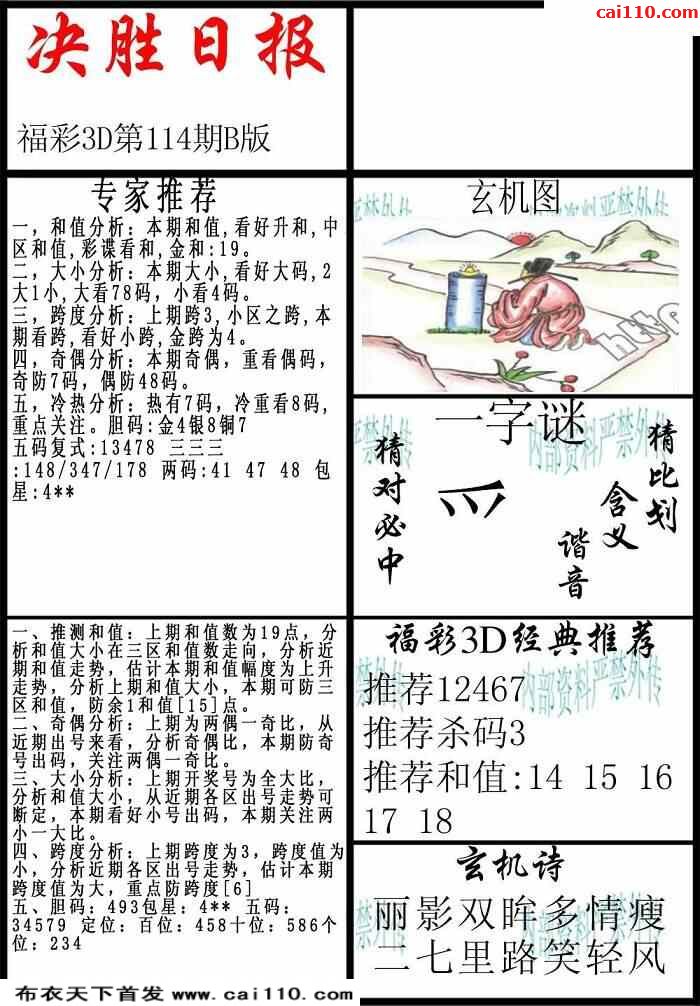 cai110.com
决胜日报
福彩3D第114期B版
专家推荐
一，和值分析：本期和值，看好升和，中
区和值，彩谍看和，金和：19。
二，大小分析：本期大小，看好大码，2
大1小，大看78码，小看4码。
三，跨度分析：上期跨3，小区之跨，本
期看跨，看好小跨，金跨为4。
四，奇偶分析：本期奇偶，重看偶码，
奇防7码，偶防48码。
五，冷热分析：热有7码，冷重看8码，
重点关注。胆码：金4银8铜7
五码复式：13478 三三三
:148/347/178 两码:41 47 48 包
星:4**
玄机图
严禁外传
http
一字谜
内部资料严禁外传
猜对必中
猜比划
含义
谐音
一、推测和值：上期和值数为19点，分
析和值大小在三区和值数走向，分析近
期和值走势，估计本期和值幅度为上升
走势，分析上期和值大小，本期可防三
区和值，防余1和值[15]点。
二、奇偶分析：上期为两偶一奇比，从
近期出号来看，分析奇偶比，本期防奇
号出码，关注两偶一奇比。
三、大小分析：上期开奖号为全大比，
分析和值大小，从近期各区出号走势可
断定，本期看好小号出码，本期关注两
小一大比。
四、跨度分析：上期跨度为3，跨度值为
小，分析近期各区出号走势，估计本期
跨度值为大，重点防跨度[6]
五、胆码：493包星：4** 五码：
34579 定位：百位：458十位：586个
位：234
福彩3D经典推荐
内部资料严禁外传
推荐12467
推荐杀码3
推荐和值:14 15 16
17 18
玄机诗
丽影双眸多情瘦
二七里路笑轻风
布衣天下首发 www.cai110.com